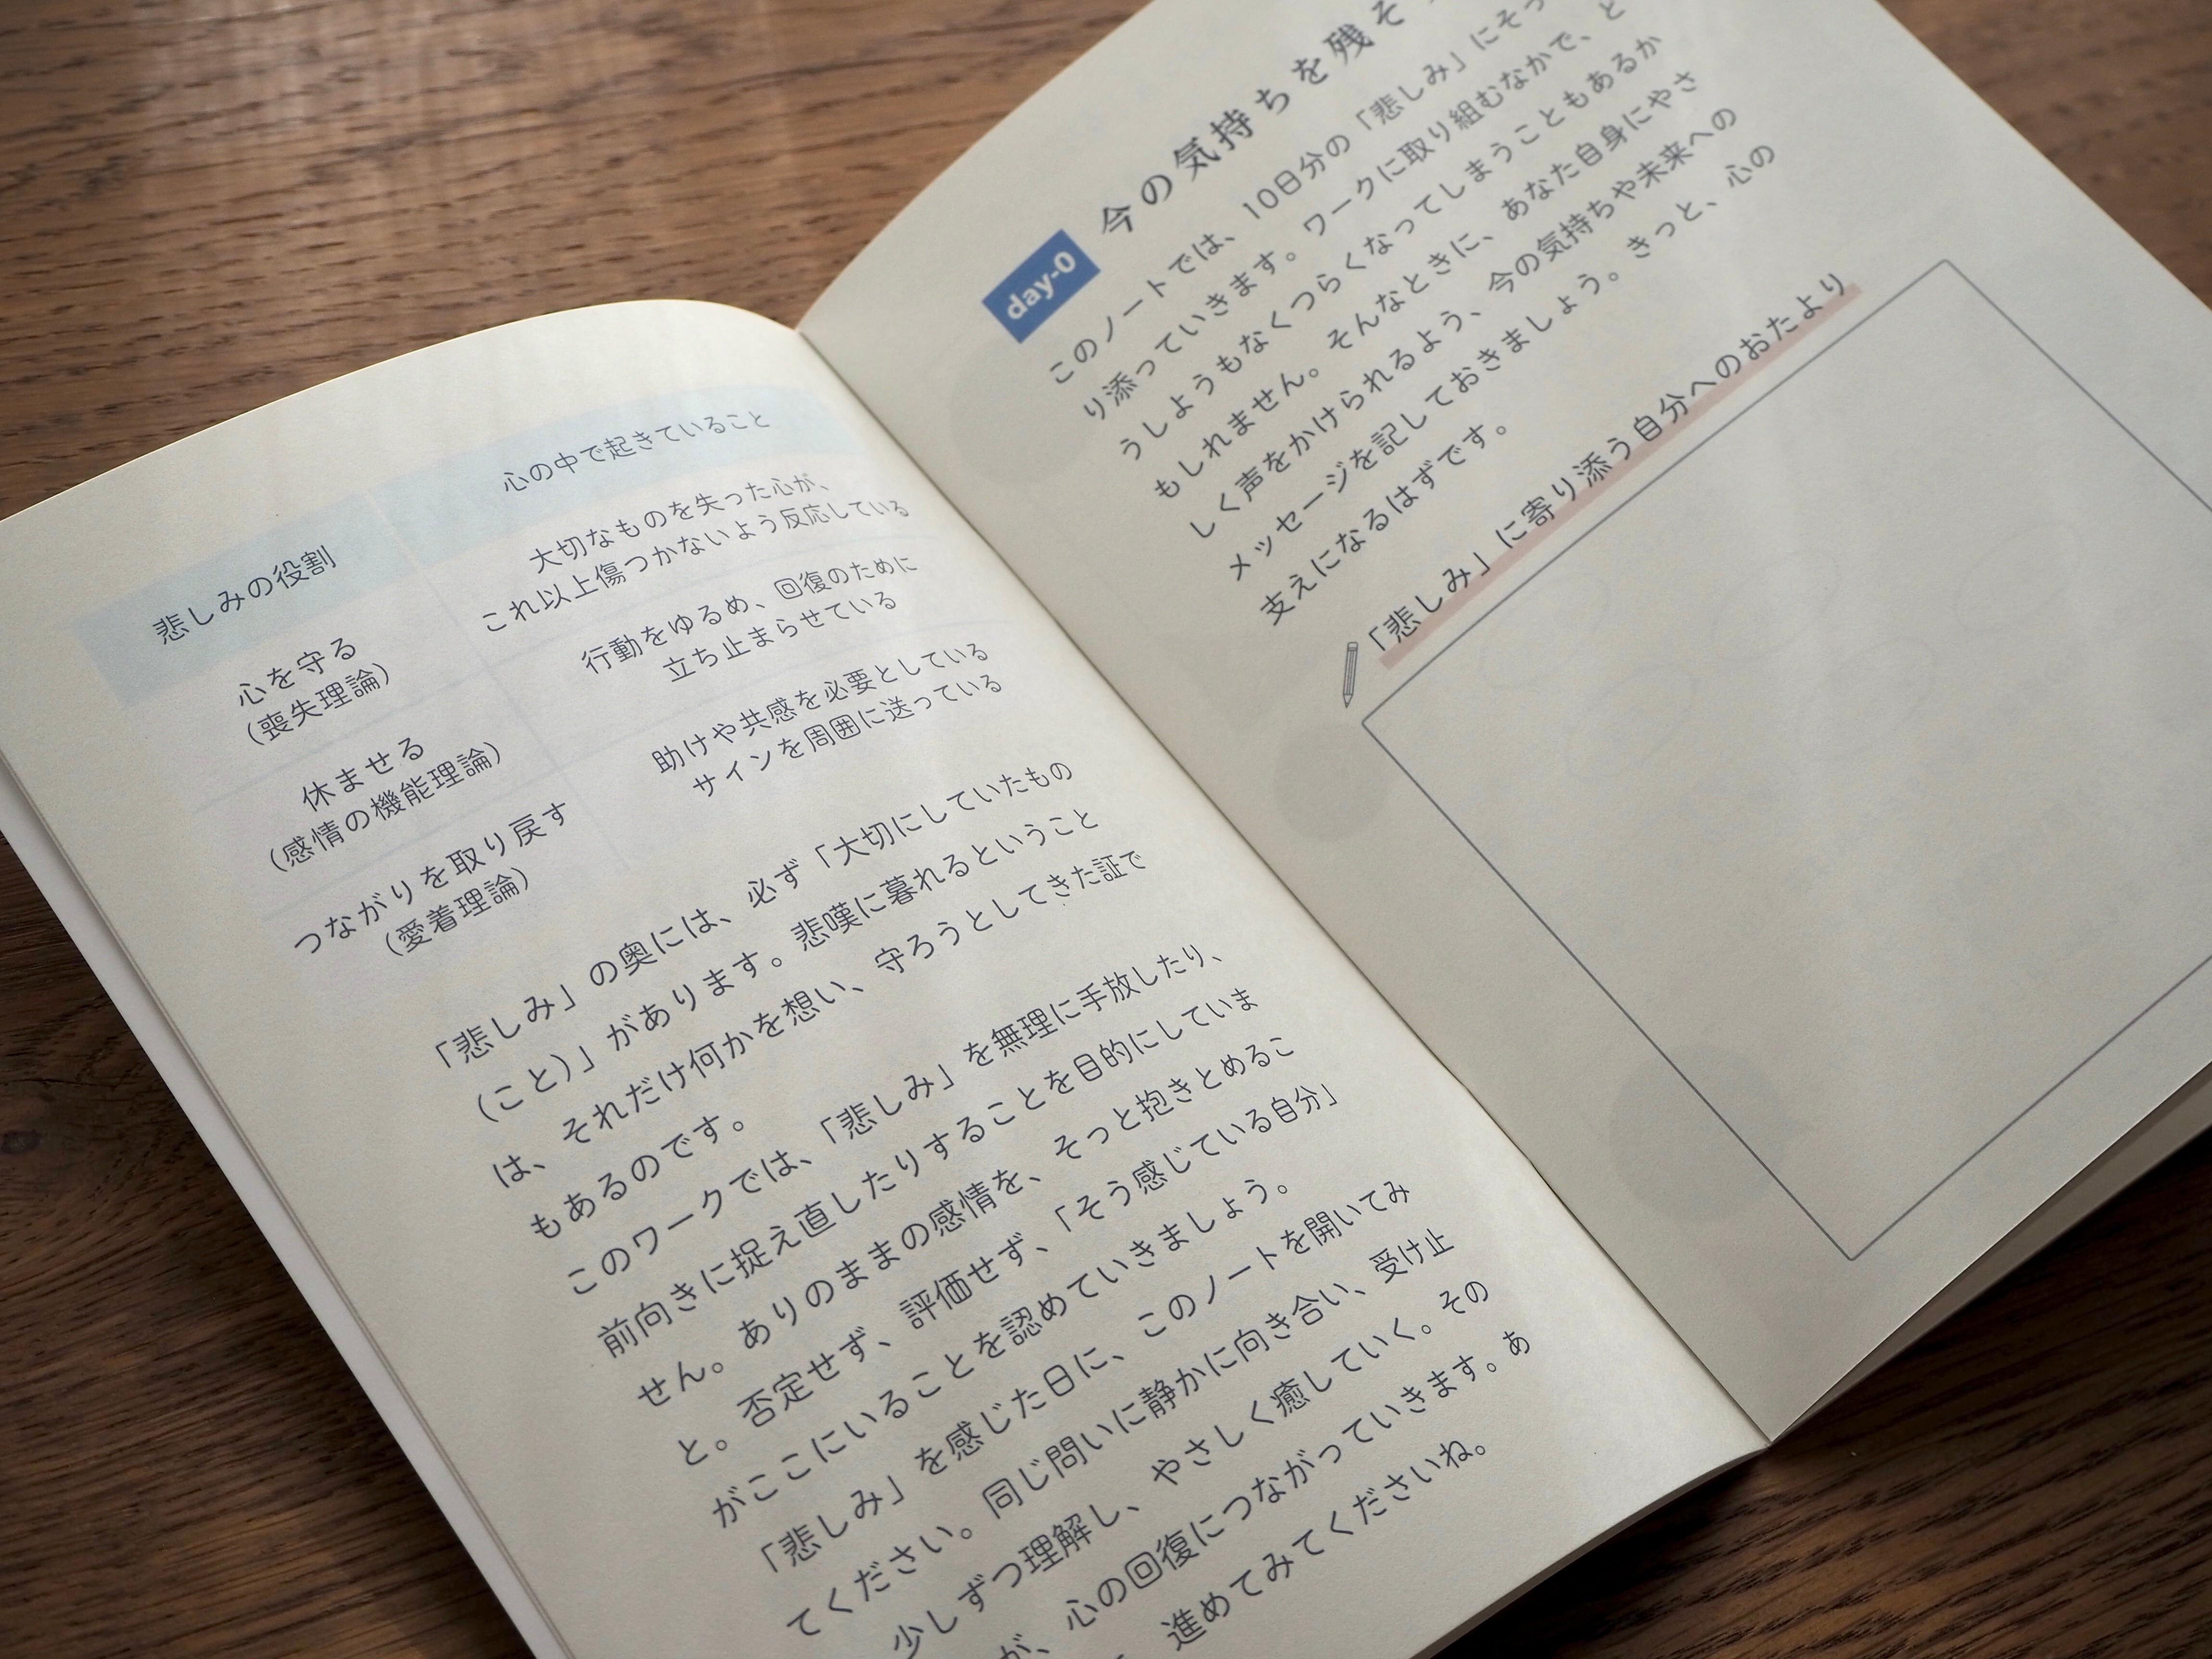 悲しみの役割
心の中で起きていること
心を守る
（喪失理論）
大切なものを失った心が、
これ以上傷つかないよう反応している
休ませる
（感情の機能理論）
行動をゆるめ、回復のために
立ち止まらせている
つながりを取り戻す
（愛着理論）
助けや共感を必要としている
サインを周囲に送っている
「悲しみ」の奥には、必ず「大切にしていたもの
（こと）」があります。悲嘆に暮れるということ
は、それだけ何かを想い、守ろうとしてきた証で
もあるのです。
このワークでは、「悲しみ」を無理に手放したり、
前向きに捉え直したりすることを目的にしていま
せん。ありのままの感情を、そっと抱きとめるこ
と。否定せず、評価せず、「そう感じている自分」
がここにいることを認めていきましょう。
「悲しみ」を感じた日に、このノートを開いてみ
てください。同じ問いに静かに向き合い、受け止
少しずつ理解し、やさしく癒していく。その
が、心の回復につながっていきます。あ
進めてみてくださいね。
day-0
今の気持ちを残そ
このノートでは、10日分の「悲しみ」にそっ
り添っていきます。ワークに取り組むなかで、ど
うしようもなくつらくなってしまうこともあるか
もしれません。そんなときに、あなた自身にやさ
しく声をかけられるよう、今の気持ちや未来への
メッセージを記しておきましょう。きっと、心の
支えになるはずです。
「悲しみ」に寄り添う自分へのおたより